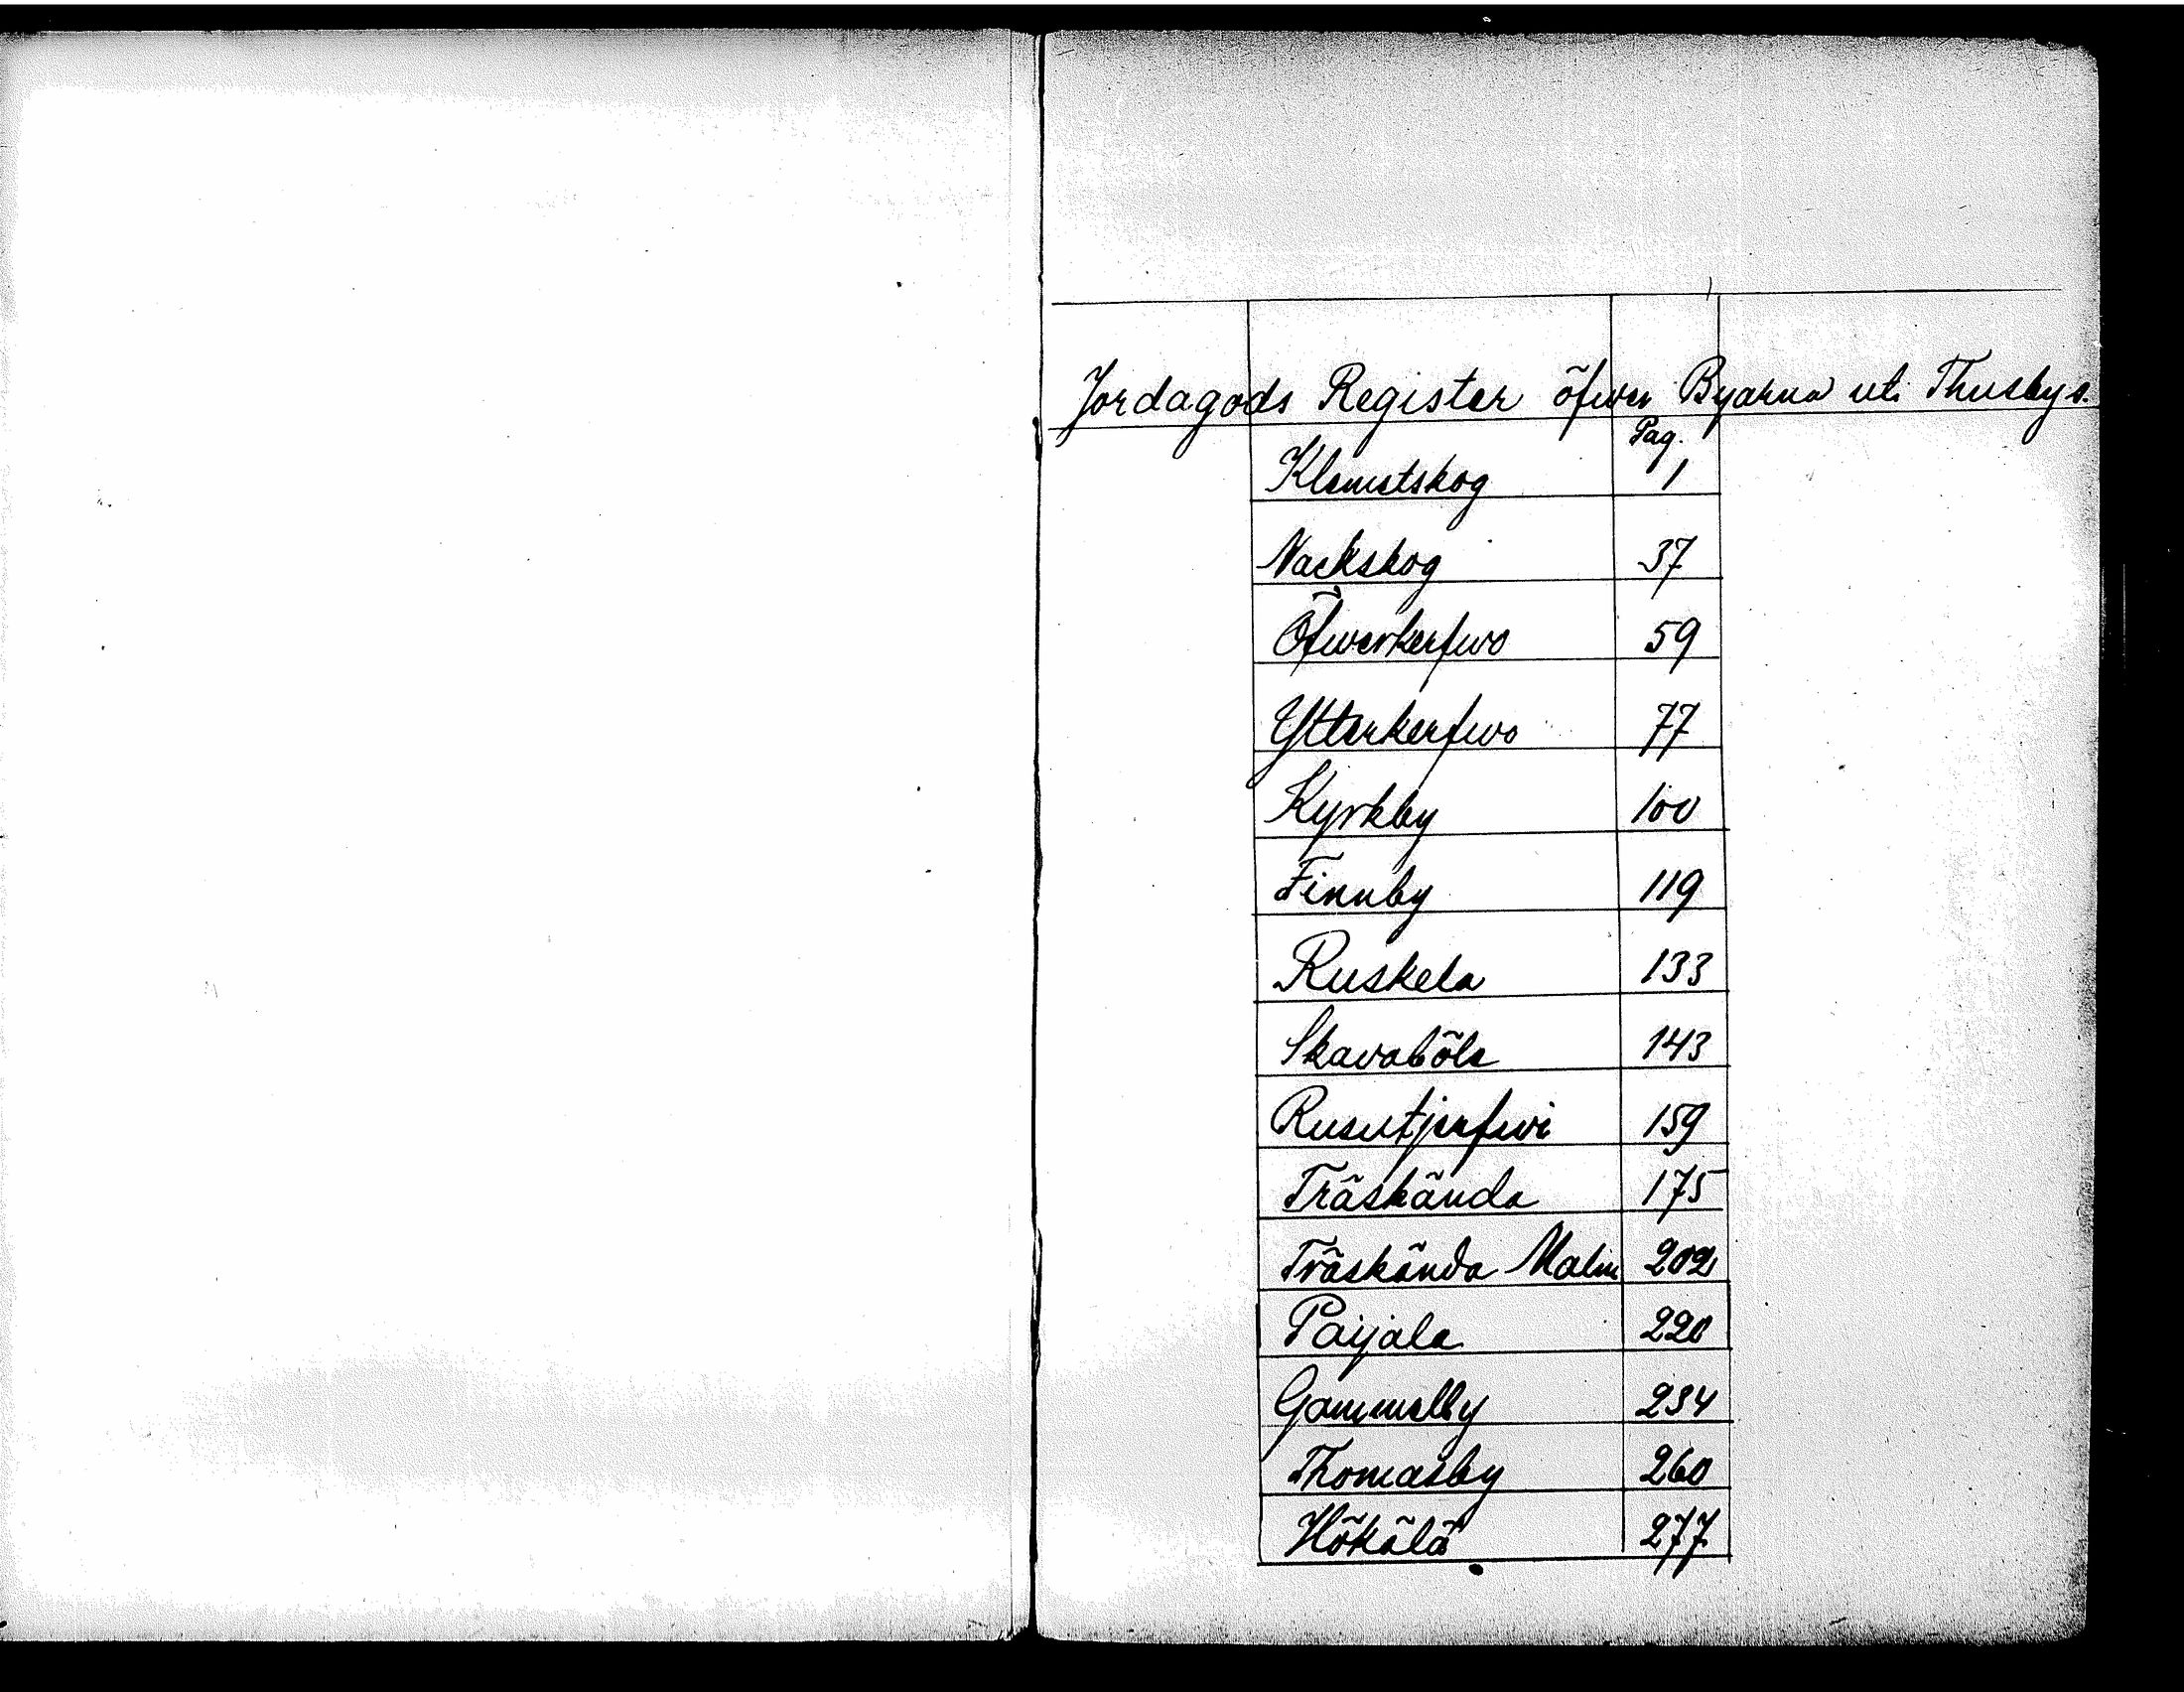 Jordagods Register öfver Byarna uti Thusby s.
Pag.
Klemetskog 1
Nackskog 37
Öfwerkerfwo 59
Ytterkerfwo 77
Kyrkby 100
Finnby 119
Ruskela 133
Skavaböle 143
Rusutjerfwi 159
Träskända 175
Träskända Malm 202
Paijala 220
Gammelby 234
Thomasby 260
Hökälä 277